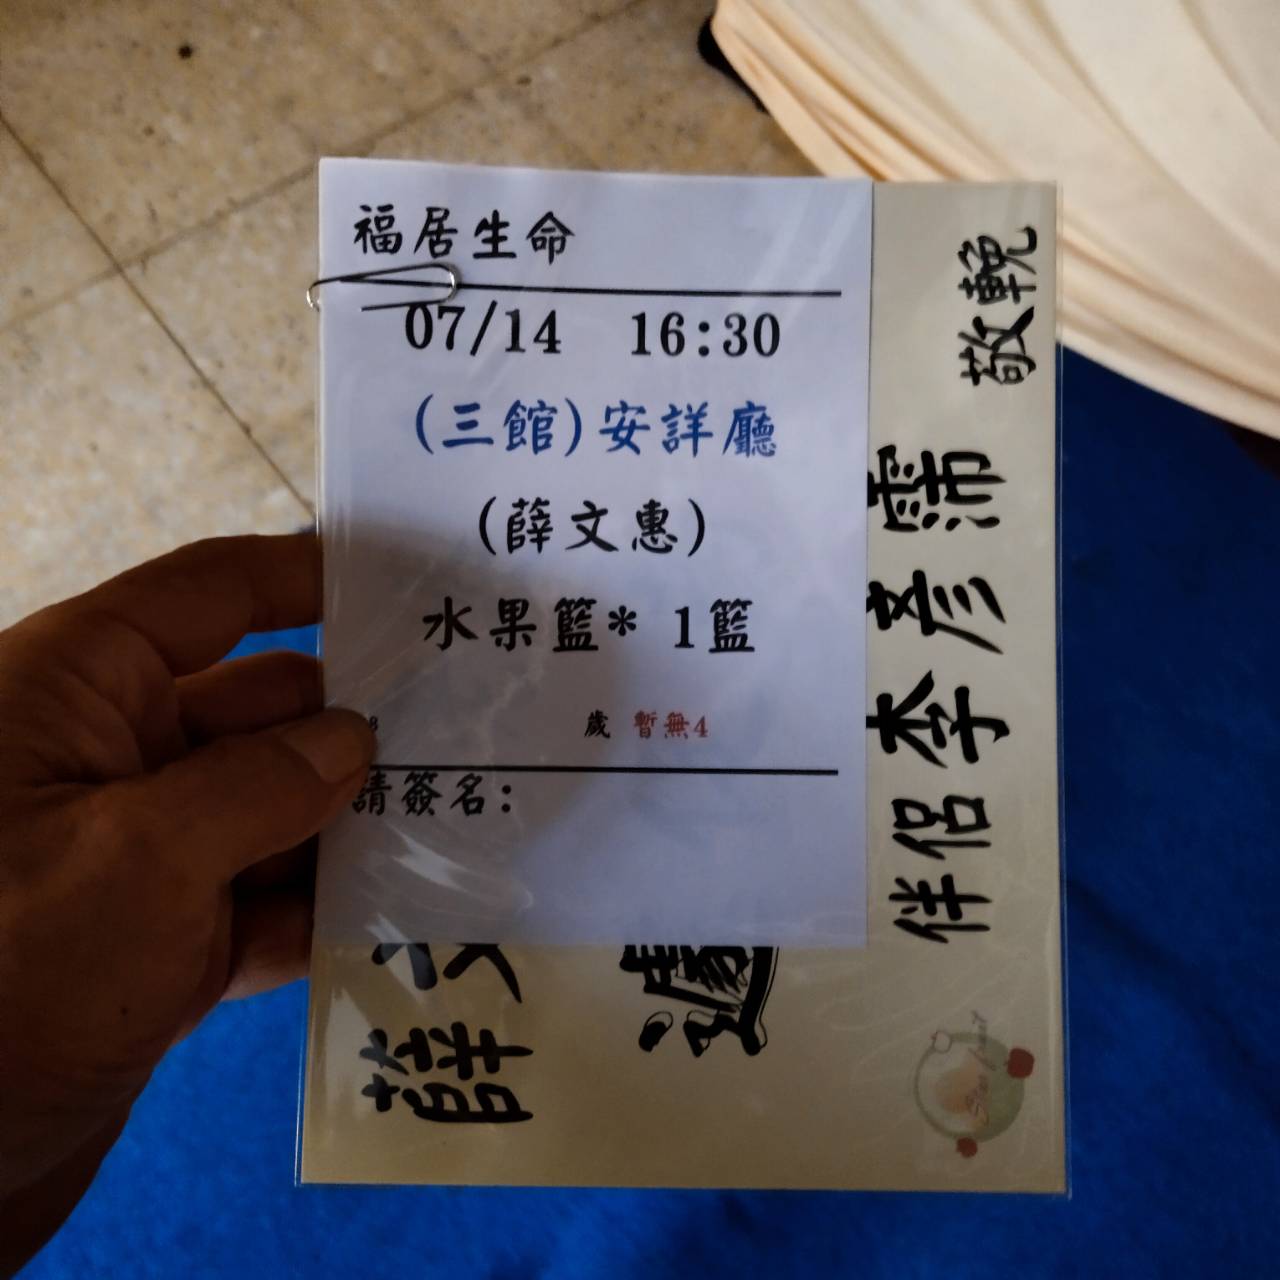 福居生命
07/14 16:30
(三館)安詳廳
(薛文惠)
水果籃* 1籃
歲 暫無4
請簽名:
薛文
伴侶李彥霈
敬輓